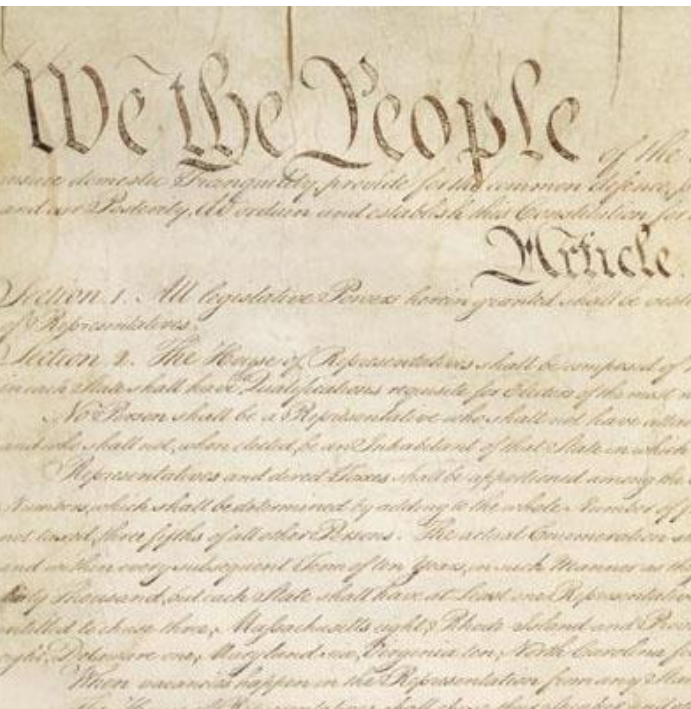 We the People of the
insure domestic Tranquility, provide for the common defence,
and our Posterity, do ordain and establish this Constitution for
Article.
Section. 1. All legislative Powers herein granted shall be
of Representatives.
Section. 2. The House of Representatives shall be composed of
in each State shall have Qualifications requisite for Electors of the most
No Person shall be a Representative who shall not have
and who shall not, when elected, be an Inhabitant of that State in which
Representatives and direct Taxes shall be apportioned among the
Numbers, which shall be determined by adding to the whole Number of
not taxed, three fifths of all other Persons. The actual Enumeration
and within every subsequent Term of ten Years, in such Manner as
thirty Thousand, but each State shall have at Least one Representative
entitled to chuse three, Massachusetts eight, Rhode Island and
eight, Delaware one, Maryland six, Virginia ten, North Carolina
When vacancies happen in the Representation from any
The House of Representatives shall chuse their Speaker and